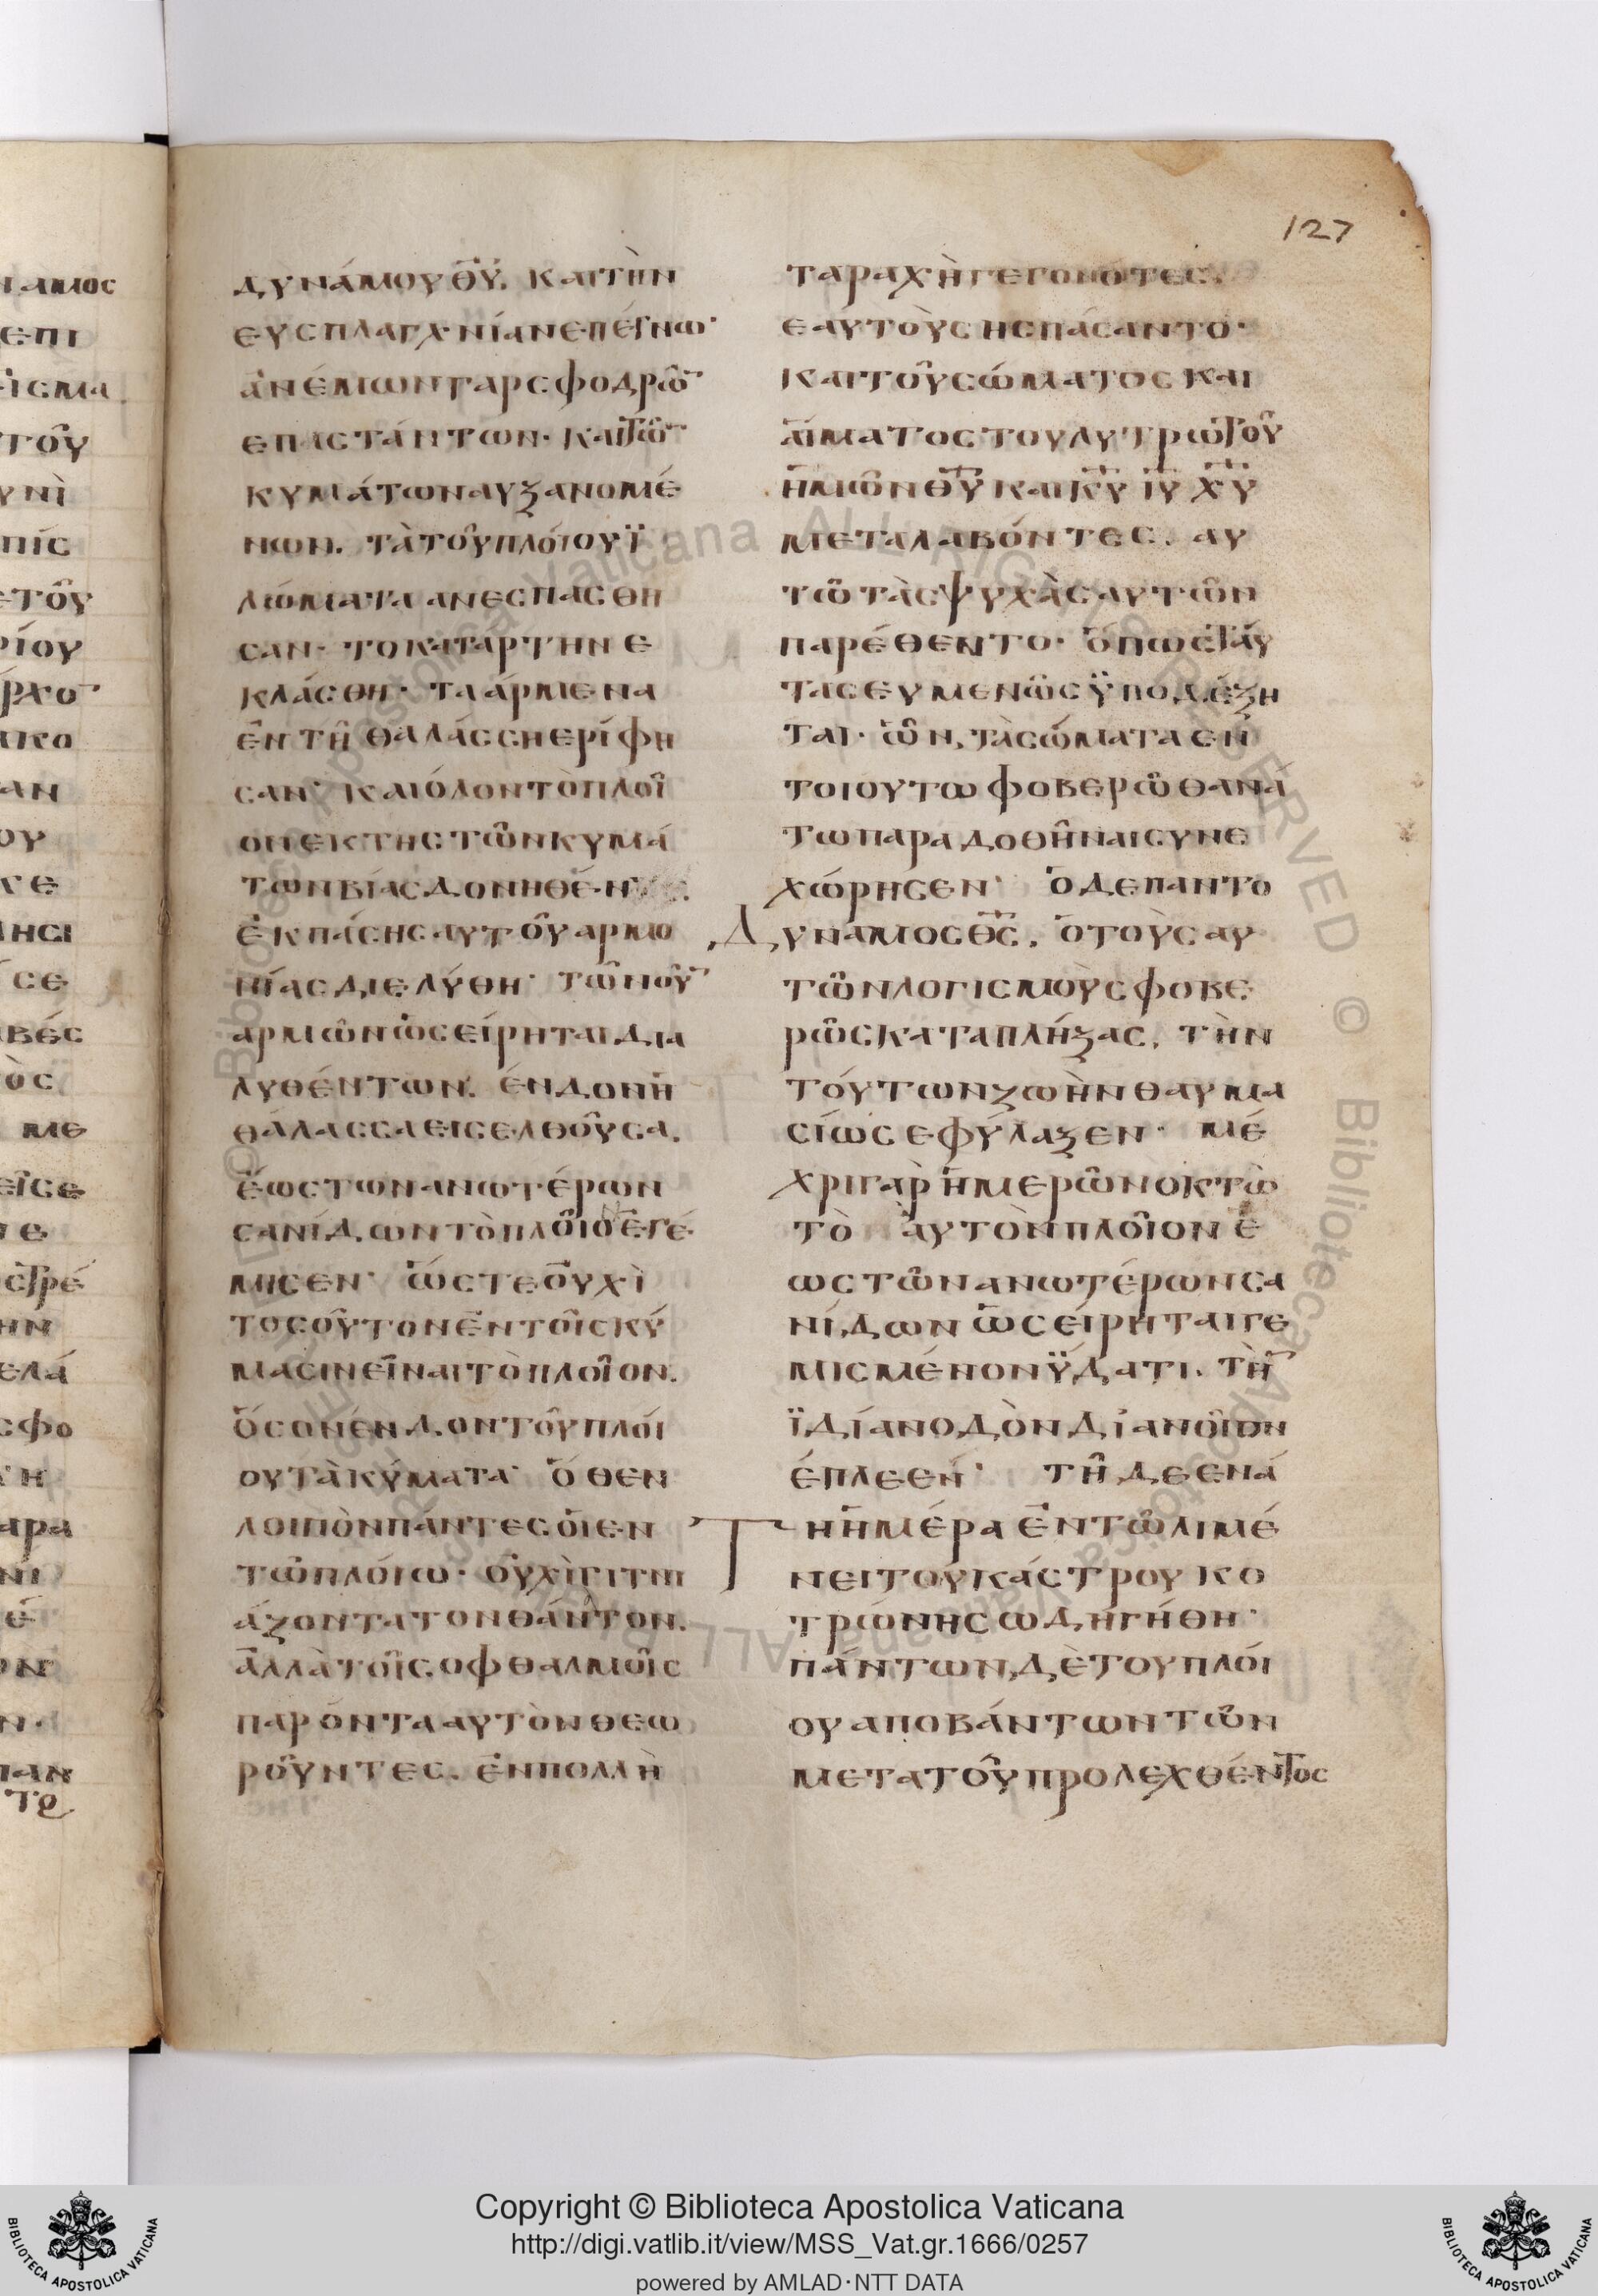 127
δυνάμου θ̅υ̅. καὶ τὴν
ευσπλαγχνίαν επέγνω·
ἀνέμων γαρ σφοδρῶ̅
επαστάντων· και τῶ̅
κυμάτων αυξανομέ
νων. τὰ τοῦ πλόιου ϊ
λώματα ανεσπασθη
σαν· το κατάρτην ε
κλάσθη· τα άρμενα
ἐν τῆ θαλάσση ερίφη
σαν· και όλον τὸ πλοῖ
ον εκ της τῶν κυμά
των βίας δονηθέν.
ἐκ πάσης αυτοῦ αρμο
νίας διελύθη· τῶν οὖ̅
αρμῶν ὡς είρηται δια
λυθέντων. ένδον ἡ
θάλασσα εισελθοῦσα.
ἕως των ανωτέρων
σανίδων τὸ πλοῖον εγέ
μησεν· ὥστε οὐχὶ
τοσοῦτον ἐν τοῖς κύ
μασιν εἶναι τὸ πλοῖον.
ὅσον ένδον τοῦ πλόι
ου τὰ κύματα· ὅθεν
λοιπὸν πάντες οἱ εν
τῶ πλόιω· οὐχὶ γιτνι
άζοντα τον θάνατον.
ἀλλὰ τοῖς οφθαλμοῖς
παρόντα αυτὸν θεω
ροῦντες. ἐν πολλὴ
ταραχὴ γεγονότες.
εαύτοὺς ησπάσαντο·
και τοῦ σώματος και
αἵματος του λυτρώτου
ἡμῶν θ̅υ̅ και κ̅υ̅ ι̅υ̅ χ̅υ̅
μεταλαβόντες. αυ
τῶ τὰς ψυχὰς αυτῶν
παρέθεντο· ὅπως ταύ
τας ευμενῶς ϋποδέξη
ται· ὧν, τὰ σώματα εν
τοιουτω φοβερῶ θανά
τω παραδοθῆναι συνε
χώρησεν· ὁ δε παντο
Δυναμος θ̅ς̅, ὁ τοὺς αυ
τῶν λογισμοὺς φοβε
ρῶς καταπλήξας, τὴν
τούτων ζωὴν θαυμα
σίως εφύλαξεν· μέ
χρι γαρ ἡμερῶν ὀκτὼ
τὸ ἀυτὸν πλοῖον έ
ως τῶν ανωτέρων σα
νίδων ὡς είρηται γε
μισμένον ϋδατι. τὴ̅
ϊδίαν οδὸν διανοῖον
έπλεεν· τῆ δε ενά
Τη ἡμέρα ἐν τῶ λιμέ
νει του κάστρου κο
τρώνης ωδηγήθη·
πάντων δὲ του πλόι
ου αποβάντων τῶν
μετα τοῦ προλεχθέντος
Copyright © Biblioteca Apostolica Vaticana
http://digi.vatlib.it/view/MSS_Vat.gr.1666/0257
powered by AMLAD·NTT DATA